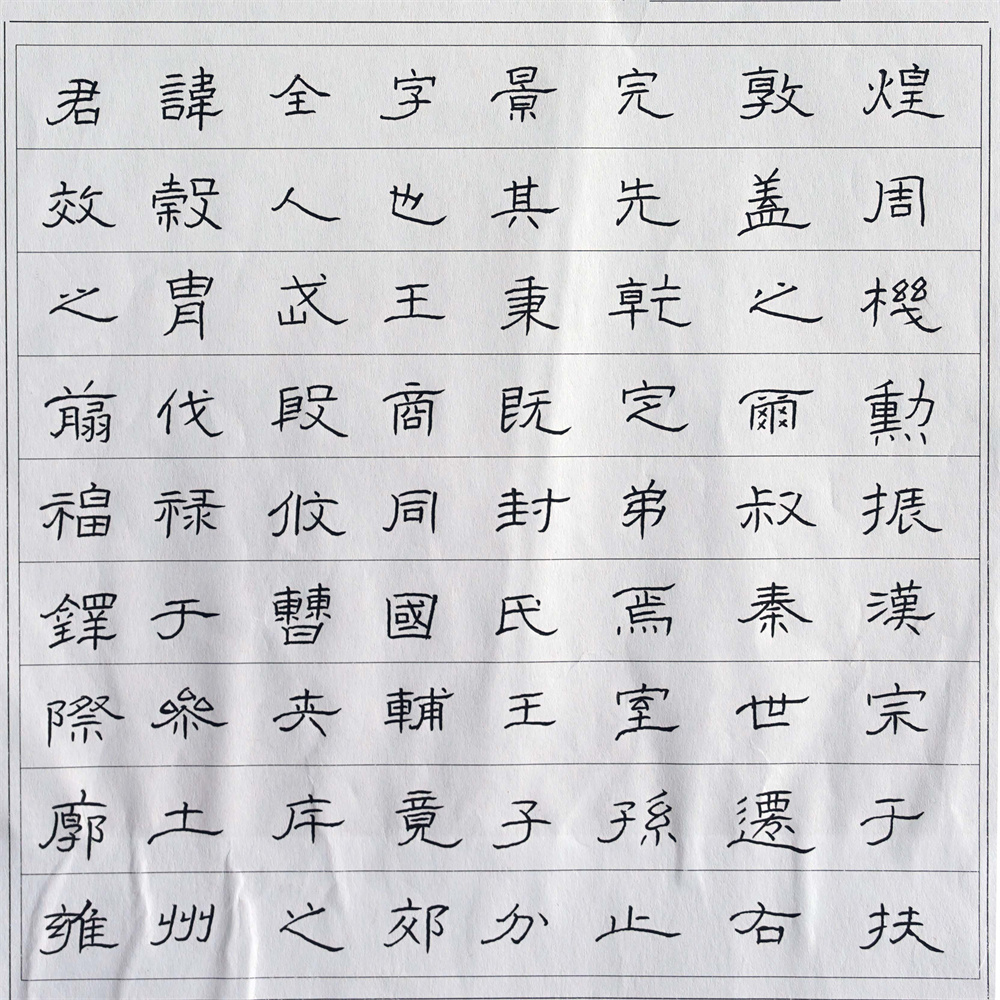 君諱全字景完敦煌
效穀人也其先蓋周
之胄武王秉乾之機
翦伐殷商既定爾勳
福祿攸同封弟叔振
鐸于曹國氏焉秦漢
際參夾輔王室世宗
廓土斥竟子孫遷于
雍州之郊分止右扶